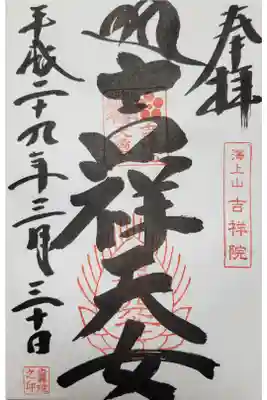 奉拝
澤上山 吉祥院
吉祥天女
平成二十九年三月三十日